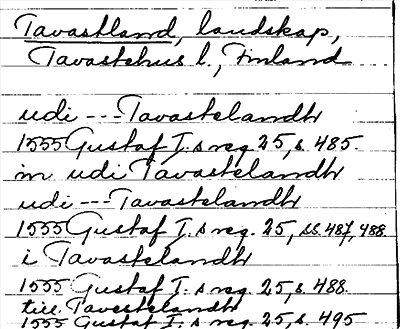 Tavastland, landskap,
Tavastehus l., Finland
udi --- Tavastelandh
1555 Gustaf I:s reg. 25, s. 485.
in udi Tavastelandh
udi --- Tavastelandh
1555 Gustaf I:s reg. 25, ss. 487, 488
i Tavastelandh
1555 Gustaf I:s reg. 25, s. 488.
till Tavestelandh
1555 Gustaf I:s reg. 25, s. 495